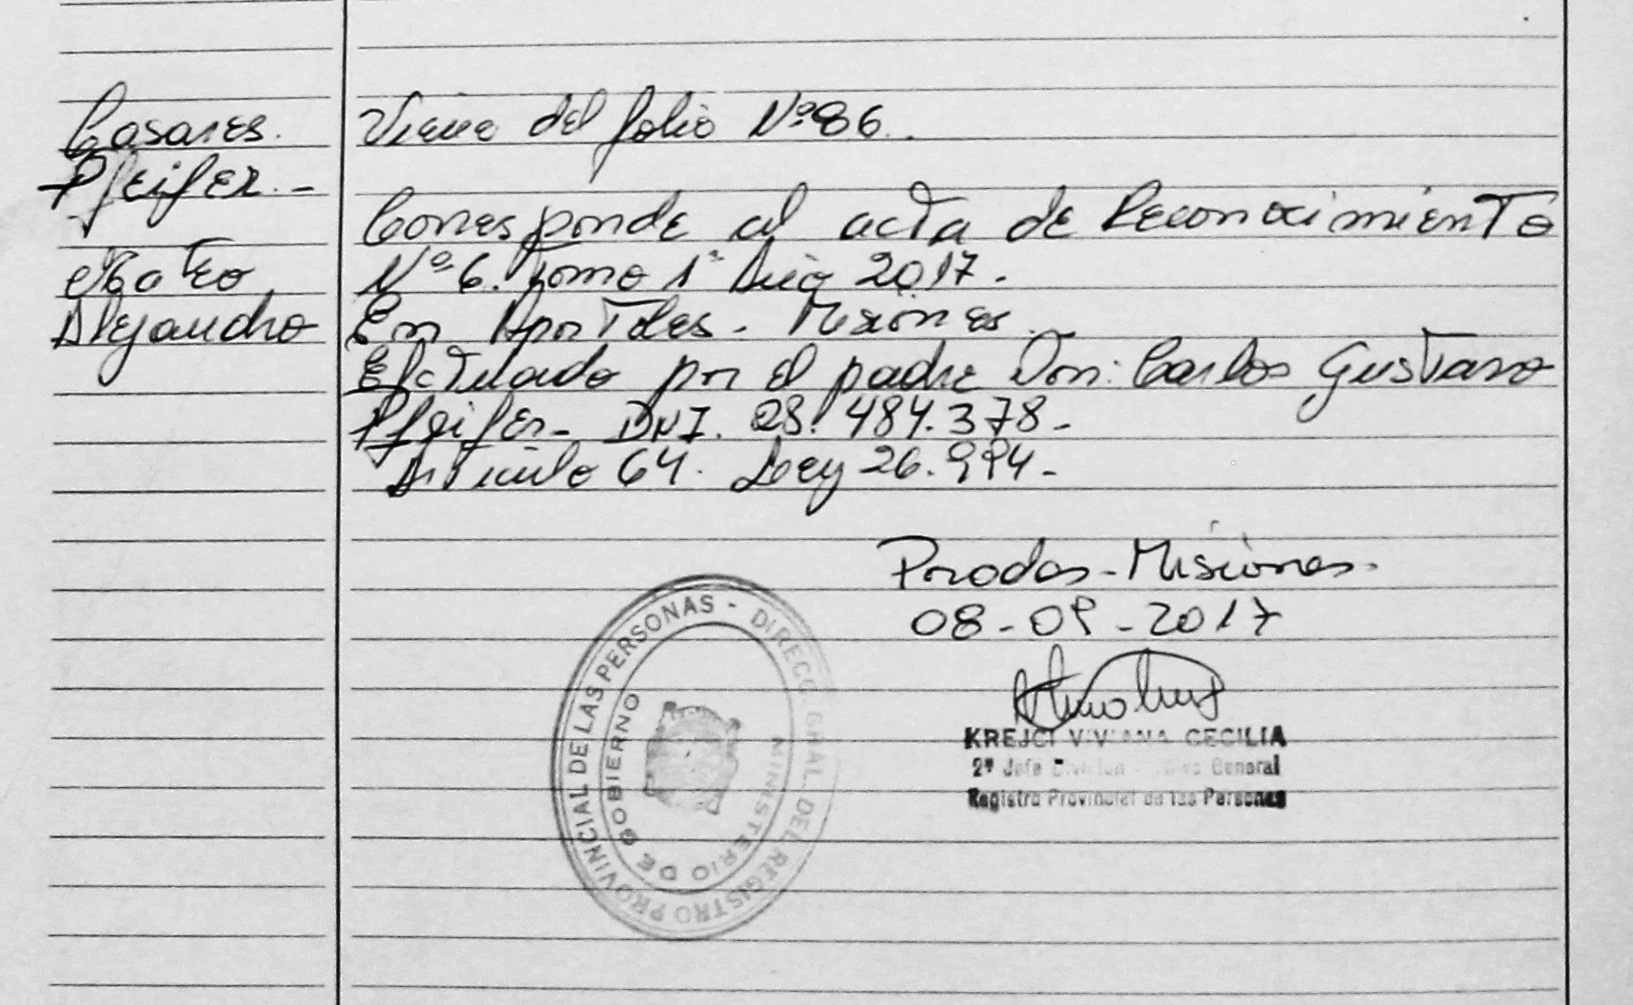 Casares.
Pfeifer.-
Mateo
Alejandro
Viene del folio Nº86.
Corresponde al acta de Reconocimiento
Nº6. Tomo 1º Año 2017.
En Apostoles. Misiones.
Efctuado por el padre Don: Carlos Gustavo
Pfeifer- DNI. 28.484.378-
Articulo 64. Ley 26.994-
Posadas-Misiones.
08-09-2017
KREJCI VIVIANA CECILIA
2º Jefe División General
Registro Provincial de las Personas
DIRECC. GRAL. DEL REGISTRO PROVINCIAL DE LAS PERSONAS -
MINISTERIO DE GOBIERNO